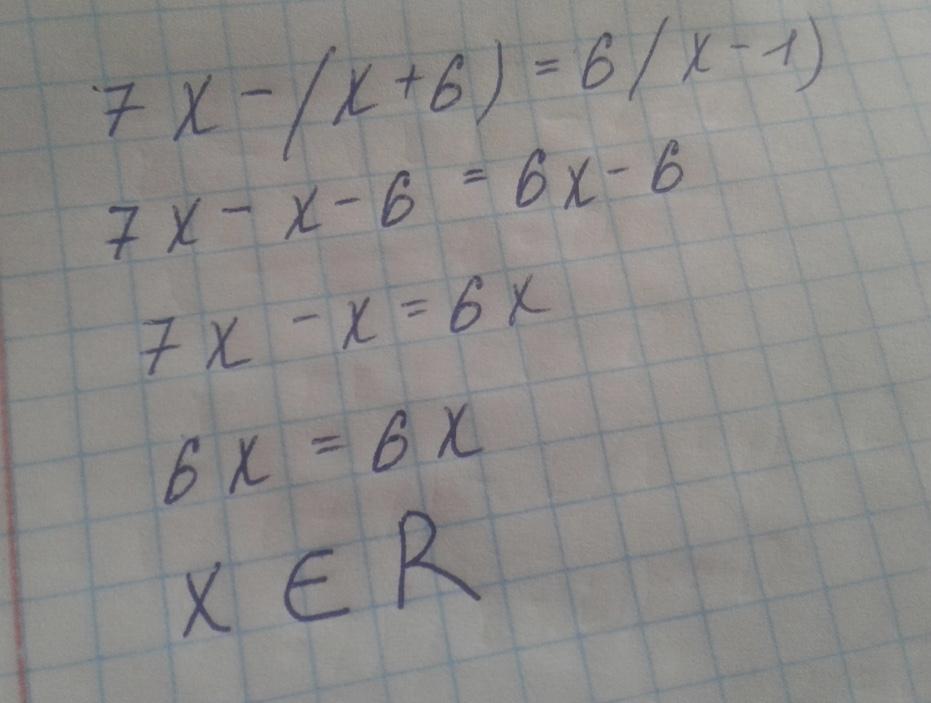 7x-(x+6)=6(x-1)
7x-x-6=6x-6
7x-x=6x
6x=6x
x∈R